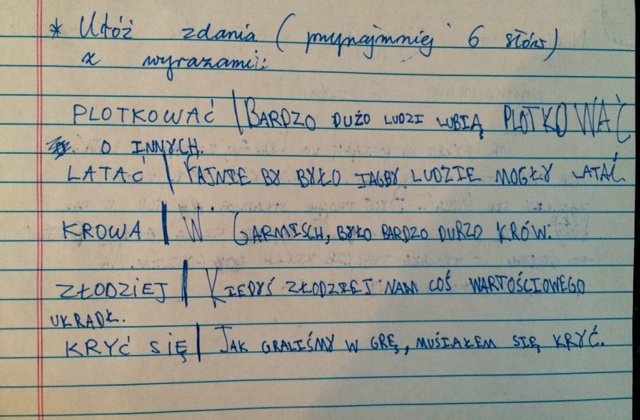 * Ułóż zdania (przynajmniej 6 słów)
z wyrazami:
PLOTKOWAĆ | BARDZO DUŻO LUDZI LUBIĄ PLOTKOWAĆ
O INNYCH.
LATAĆ | FAJNIE BY BYŁO JAGBY LUDZIE MOGŁY LATAĆ
KROWA | W GARMISCH, BYŁO BARDZO DURZO KRÓW.
ZŁODZIEJ | KIEDYŚ ZŁODZIEJ NAM COŚ WARTOŚCIOWEGO
UKRADŁ.
KRYĆ SIĘ | JAK GRALIŚMY W GRĘ, MUSIAŁEM SIĘ KRYĆ.